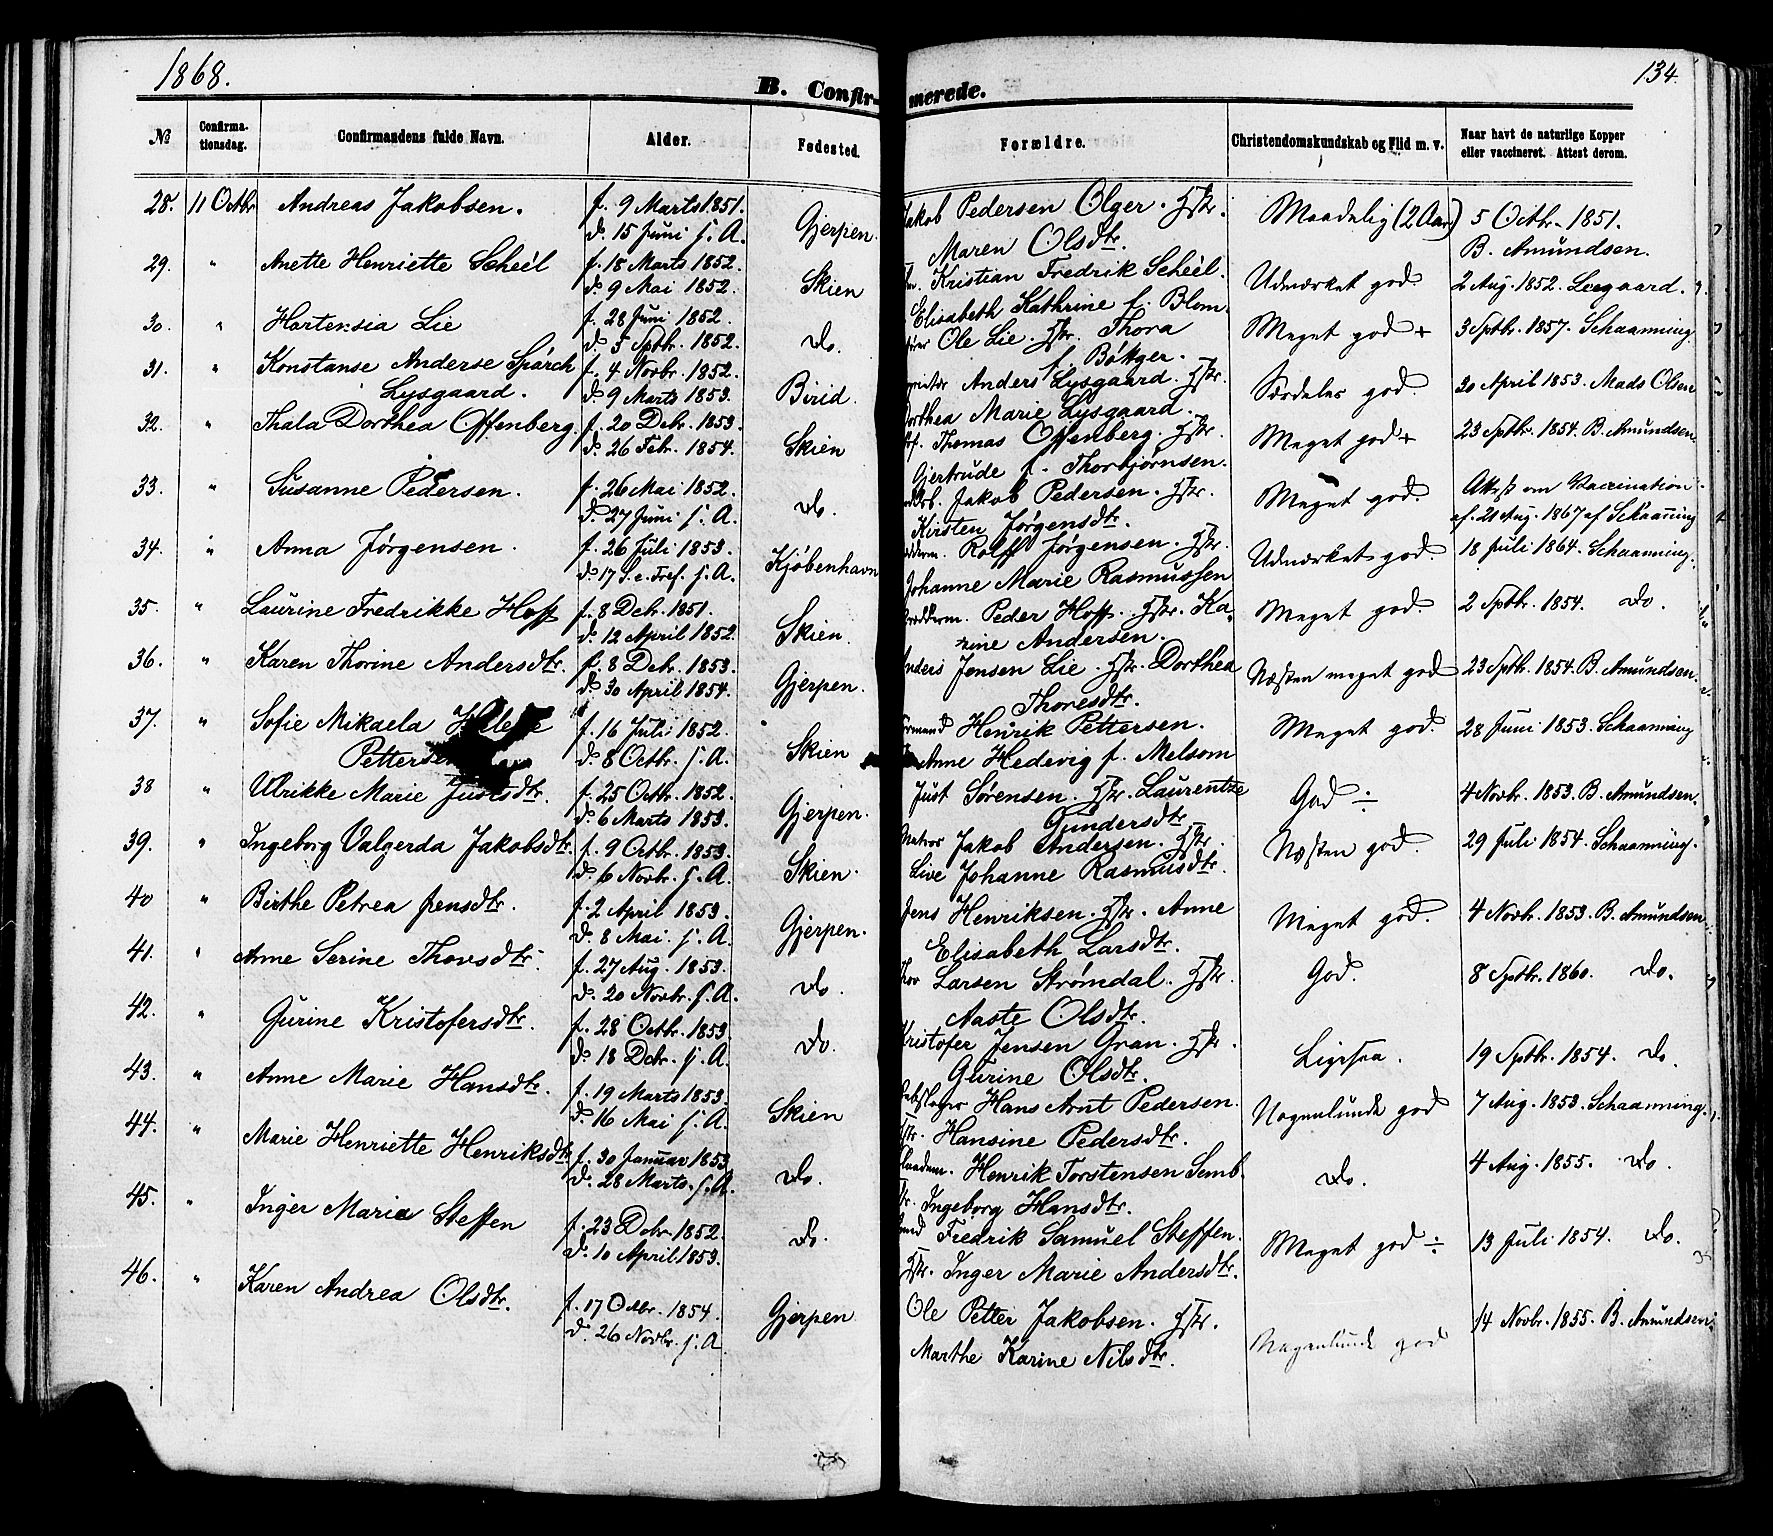 1868.
134.
B. Confirmerede.
No
Confirmationsdag.
Confirmandens fulde Navn.
Alder.
Fødested.
Forældre.
Christendomskundskab og Flid m. v.
Naar havt de naturlige Kopper eller vaccineret. Attest derom.
28. 11 Octbr Andreas Jakobsen. f. 9 Marts 1851. Gjerpen. Jakob Pedersen Olger. Hstr. Maadelig (2 Aar) 5 Octbr. 1851.
d. 15 Juni s. A. Maren Olsdtr. B. Amundsen.
29. " Anette Henriette Scheèl f. 18 Marts 1852. Skien Kristian Fredrik Scheèl. Udmærket god 2 Aug. 1852. Leegaard.
d. 9 Mai 1852. Elisabeth Kathrine f. Blom
30. " Hortensia Lie f. 28 Juni 1852. Do. Ole Lie. Hstr. Thora Meget god + 3 Sptbr. 1857. Schaanning
d. 5 Sptbr. 1852. f. Bötger.
31. " Konstanse Anderse Spärch f. 4 Novbr. 1852. Birid. Anders Lysgaard. Hstr. Særdeles god. 30 April 1853. Mads Olsen
Lysgaard. d. 9 Marts 1853. Dorthea Marie Lysgaard.
32. " Thala Dorthea Offenberg. f. 20 Debr. 1853. Skien Thomas Offenberg. Hstr. Meget god + 23 Sptbr. 1854. B. Amundsen.
d. 26 Febr. 1854. Gjertrude f. Thorbjørnsen.
33. " Susanne Pedersen. f. 26 Mai 1852. Do. Jakob Pedersen. Hstr. Meget god. Attest om Vaccination
d. 27 Juni s. A. Kirsten Jørgensdtr. af 21 Aug. 1867 af Schaanning
34. " Anna Jørgensen. f. 26 Juli 1853. Kjøbenhavn Rolff Jørgensen. Hstr. Udmærket god 18 Juli 1864. Schaanning.
d. 17 S. e. Tref. s. A. Johanne Marie Rasmussen
35. " Laurine Fredrikke Hoff f. 8 Debr. 1851. Skien. Peder Hoff. Hstr. Ka- Meget god. 2 Sptbr. 1854. Do.
d. 12 April 1852. rine Andersen.
36. " Karen Thorine Andersdtr. f. 8 Debr. 1853. Gjerpen. Anders Jensen Lie. Hstr. Dorthea Næsten meget god 23 Sptbr. 1854. B. Amundsen.
d. 30 April 1854. Thoresdtr.
37. " Sofie Mikaela f. 16 Juli 1852. Skien Henrik Pettersen. Meget god. 28 Juni 1853. Schaanning
d. 8 Octbr. s. A. Anne Hedevig f. Melsom
38 " Ulrikke Marie Justsdtr. f. 25 Octbr. 1852. Gjerpen. Just Sørensen. Hstr. Laurentze God ÷ 4 Novbr. 1853. B. Amundsen.
d. 6 Marts 1853. Gundersdtr.
39. " Ingeborg Valgerda Jakobsdtr. f. 9 Octbr. 1853. Skien. Matros Jakob Andersen. Hstr. Næsten god. 29 Juli 1854. Schaanning.
d. 6 Novbr. s. A. Live Johanne Rasmusdtr.
40 " Birthe Petrea Jensdtr. f. 2 April 1853. Gjerpen. Jens Henriksen. Hstr. Anne Meget god. 4 Novbr. 1853. B. Amundsen
d. 8 Mai. s. A. Elisabeth Larsdtr.
41. " Anne Serine Thovsdtr. f. 27 Aug. 1853. Do. Larsen Strømdal. Hstr. God. 8 Sptbr. 1860. Do.
d. 20 Novbr. s. A. Aaste Olsdtr.
42. " Gurine Kristofersdtr. f. 28 Octbr. 1853. Do. Kristofer Jensen Gran. Hstr. Ligesaa. 19 Sptbr. 1854. Do
d. 18 Debr. s. A. Gurine Olsdtr.
43. " Anne Marie Hansdtr. f. 19 Marts 1853. Skien Hans Arnt Pedersen. Nogenlunde god 7 Aug. 1853. Schaanning.
d. 16 Mai s. A. Hstr. Hansine Pedersdtr.
44. " Marie Henriette Henriksdtr. f. 30 Januar 1853 Do. Henrik Torstensen Semb. Do. 4 Aug. 1855. Do.
d. 28 Marts. s. A. Ingeborg Hansdtr.
45. " Inger Marie Steffen f. 23 Debr. 1852. Do. Fredrik Samuel Steffen. Meget god ÷ 13 Juli 1854. Do.
d. 10 April 1853. Hstr. Inger Marie Andersdtr.
46. " Karen Andrea Olsdtr. f. 17 1854. Gjerpen Ole Petter Jakobsen. Hstr. Nogenlunde god 14 Novbr. 1855. B. Amundsen.
d. 26 Novbr. s. A. Marthe Karine Nilsdtr.